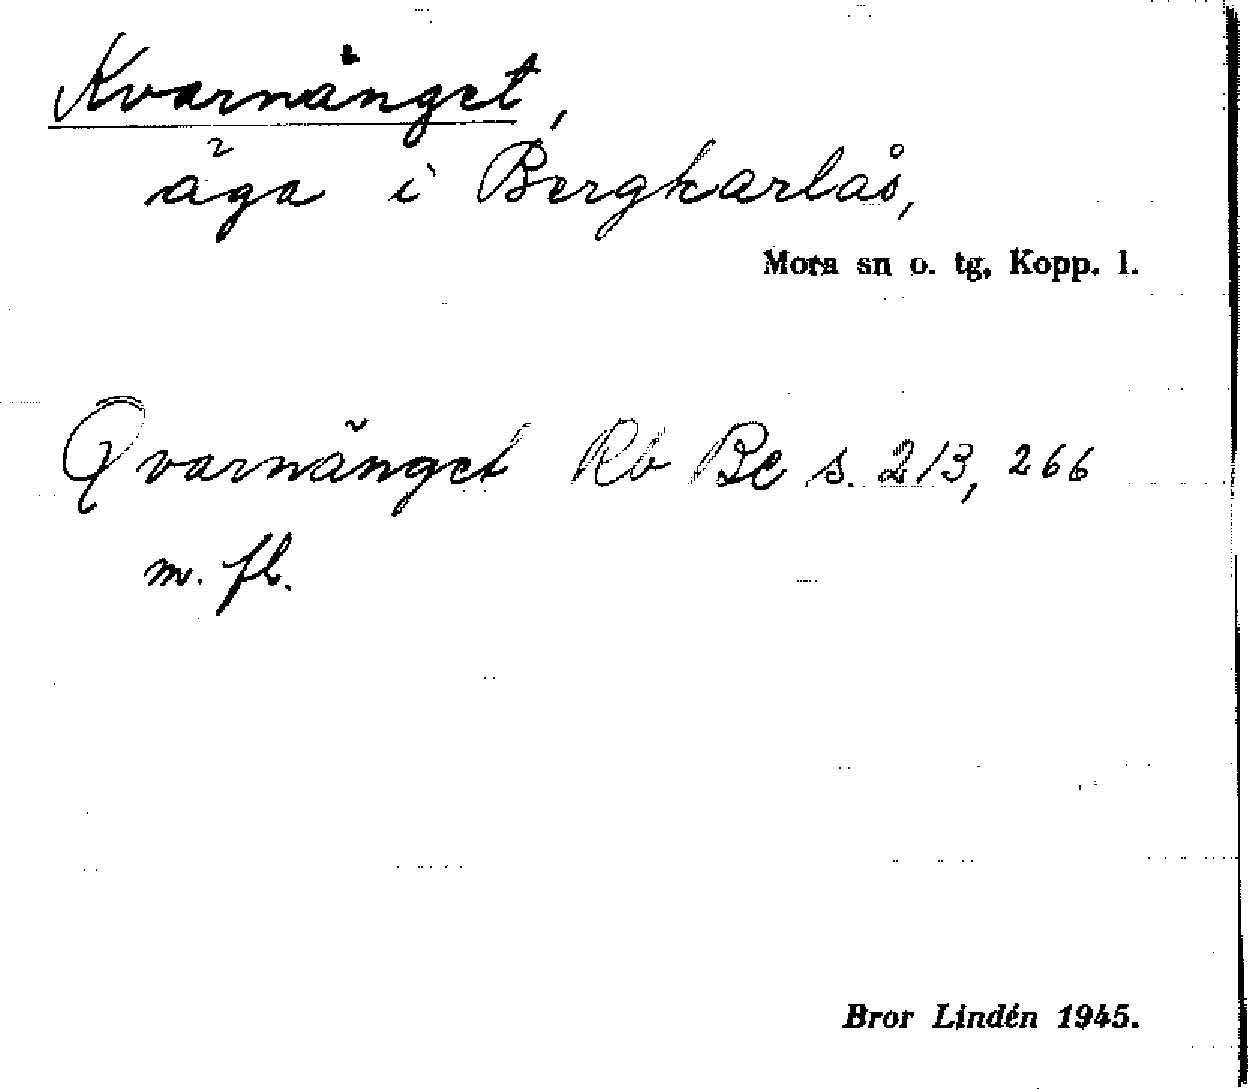 Kvarnänget,
äga i Bergkarlås,
Mora sn o. tg, Kopp. l.
Qvarnänget Rb Be s. 213, 266
m. fl.
Bror Lindén 1945.